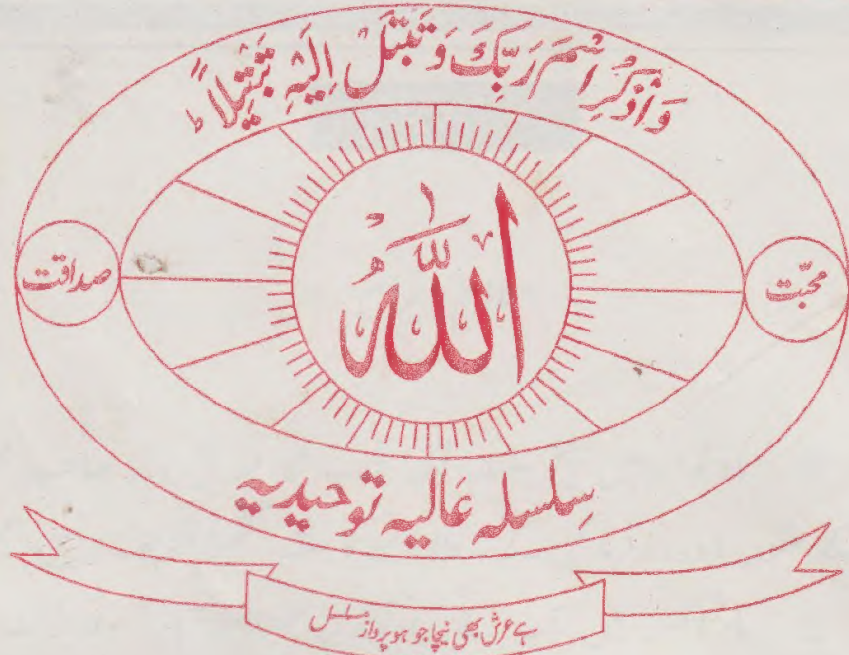 وَاذْكُرِ اسْمَ رَبِّكَ وَتَبَتَّلْ اِلَیْہِ تَبْتِیْلًاؕ
اللّٰہُ
محبّت
صداقت
سِلسلہ عَالیہ توحیدیہ
ہے عرش بھی نیچا جو ہو پرواز مسلسل